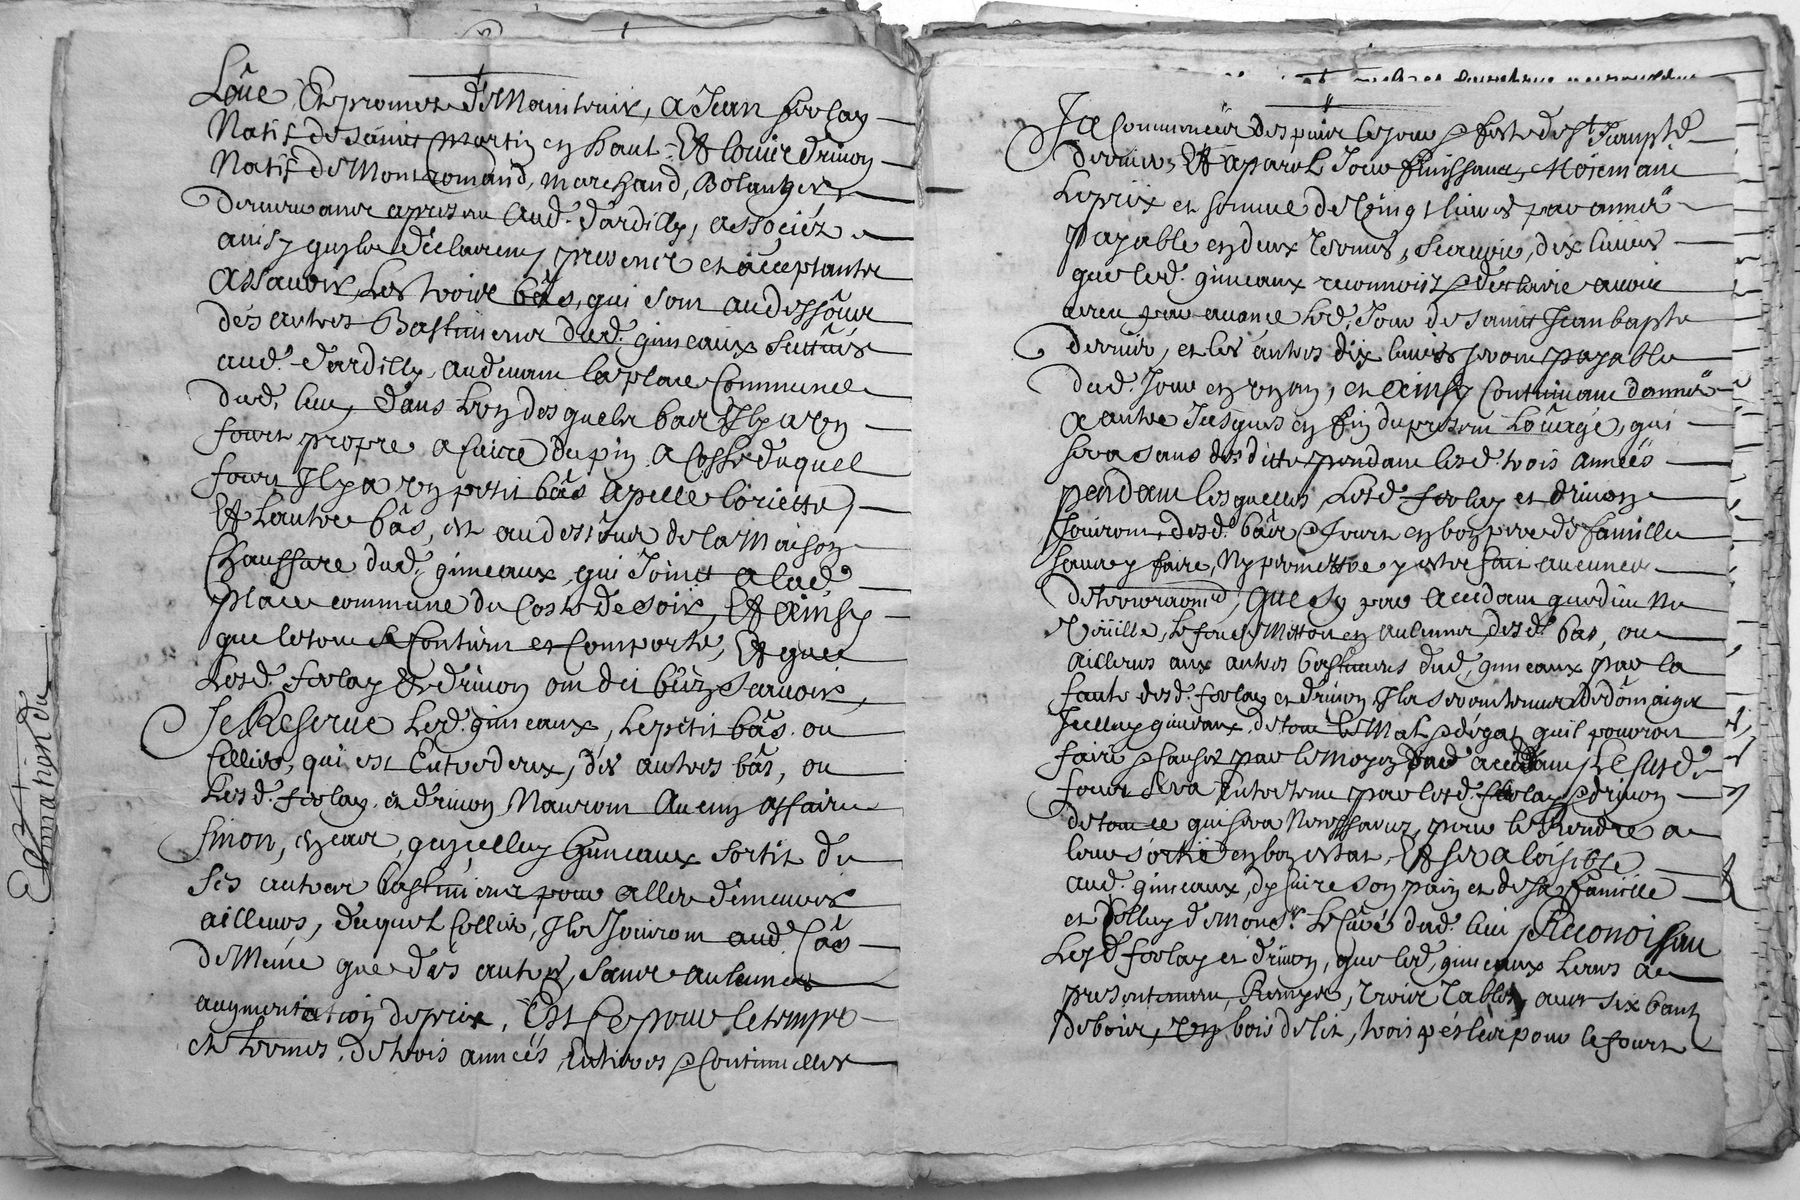 Loüe, Et promet de Maintenir, a Jean ferlay
Natif de saint martin en haut Et louis drivon
Natif de Montromand, marchand, Bolangers
demeurans apresent aud. dardilly, associéz
ainsy quils declarent, presents et acceptantz
Assavoir, Les trois bâs, qui sont au dessoûs
des autres Bastiments dud. gimeaux scittués
aud. dardilly, audevant la place Commune
dud. lieu, dans l'un desquels bas Il y a un
fourt propre a cuire du pin, a Costé duquel
fourt Il y a un petit bâs apellé
Et L'autre bâs, est au dessous de la Maison
Chauffare dud. gimeaux, qui Joinct a lad.
place commune du Costé de soir, Et Ainsy
que le tout se Contient et Comporte, Et que
Lesd. ferlay et drivon ont dit bien scavoir,
Se Reserve Led. gimeaux, Le petit bâs ou
sellier, qui est Entredeux, des autres bâs, ou
Lesd. ferlay et drivon N'auront Aucun affaire
sinon, en cas, qu'icelluy Gimeaux sortit de
ses autres bastiments pour aller demeurer
ailleurs, duquel sellier, Ils Jouiront aud. Câs
de Méme que des autres, sans aulcunes
augmentation de prix, Est Ce pour le temps
et termes, de trois années, Entieres & Continuelles
Estimation du
Ja Commencées despuis le jour & feste de St Jean bpte
dernier, Et a pareil Jour finissants, Moienant
Le prix et somme de Vingt livres par année
payable en deux termes, scavoir, dix livres
que led. gimeaux reconnoist & declaire avoir
receu par avance led. Jour de saint Jean bapte
dernier, et les autres dix livres seront payable
dud. Jour en un an, et ainsy Continuant d'année
a autre Jusques en fin du present Loüage, qui
sera sans desditte pendant lesd. trois années
pendant lesquelles Lesd. ferlay et drivon
Jouiront, desd. bâs & fourt en bon pere de famille
sans y faire, Ny promettre y estre fait aucunes
deterioraõns, Que Sy par accidant que dieu Ne
Veüille, Le feu se Mettoit en aulcuns desd. bas, ou
ailleurs aux autres bastiments dud. gimeaux par la
faute desd. ferlay et drivon, Ils seront tenus De domaiger
Icelluy gimeaux, de tout le Mal & dégat quil pouvroit
faire & causer par le moyen dud. accidant, Le susd.
fourt sera Entretenu par lesd. ferlay & drivon
de tout ce qui sera Necessaire, pour le Rendre a
leur sortie en bon estat, Et sera loisible
aud. gimeaux, dy cuire son pain et de sa famille
et Celluy de Monsr. Le Curé dud. lieu Reconoissant
Lesd. ferlay et drivon, que led. gimeaux Leurs a
presentement, Remis, trois tables, avec six bants
de bois, Un bois de lit, trois péslles pour le fourt